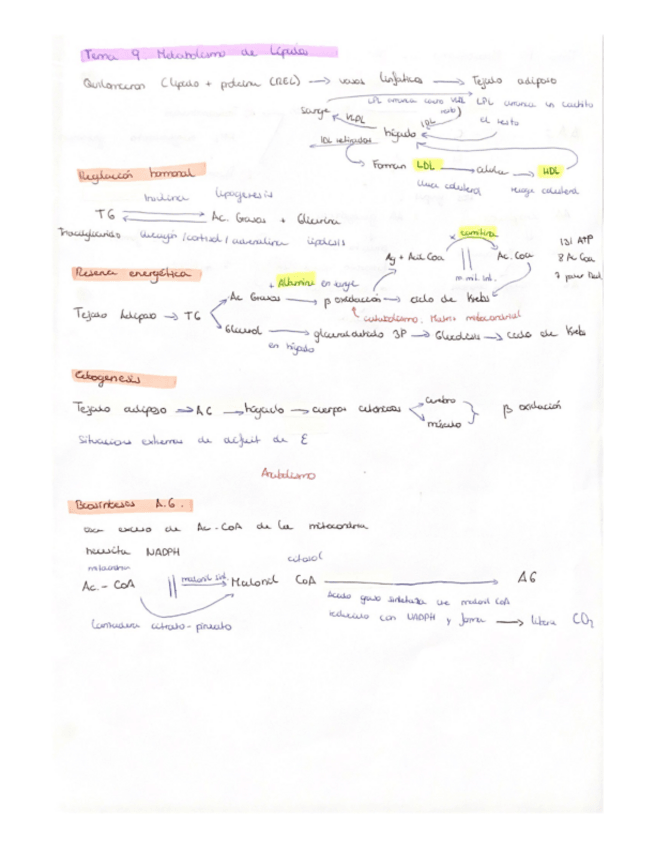 Tema 9. Metabolismo de lípidos
Quilomicron (lípido + proteína (REL) → vasos linfáticos → Tejido adiposo
LPL arranca cacho VLDL LPL arranca un cachito
sangre VLDL IDL resto) el resto
IDL hígado
Forman LDL → célula → HDL
Regulación hormonal
Insulina lipogenesis
TG Ac. Grasos + Glicerina
Triacilglicérido glucagón / cortisol / adrenalina lipolisis
carnitina
Ag + Acil CoA || Ac. CoA
m. mit. int.
131 ATP
8 Ac CoA
Reserva energética
+ Albumina en sangre
Tejido Adiposo → TG
Ac Grasos → β oxidación → ciclo de Krebs
catabolismo. Matriz mitocondrial
Glicerol → gliceraldehido 3P → Glucólisis → ciclo de Krebs
en hígado
Cetogenesis
Tejido adiposo → AG → hígado → cuerpos cetónicos
cerebro
músculo
β oxidación
Situaciones extremas de déficit de E
Anabolismo
Biosíntesis A.G.
exceso de Ac-CoA de la mitocondria
necesita NADPH
mitocondria citosol
Ac. - CoA || Malonil CoA → AG
Ácido graso sintetasa une malonil CoA
reducido con NADPH y forma → libera CO2
Lanzadera citrato-piruvato